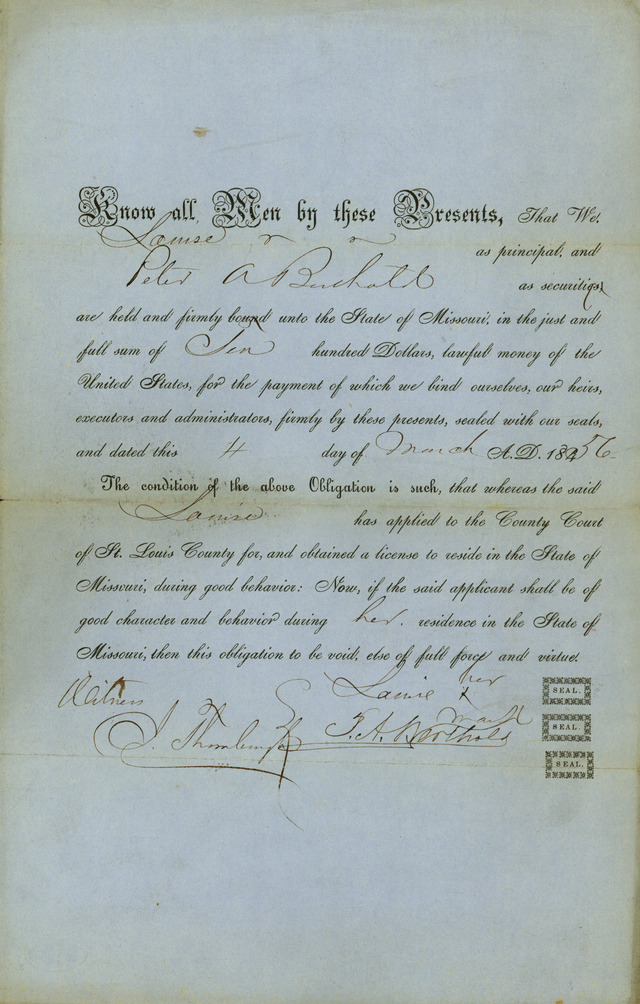 Know all Men by these Presents, That We.
Louise
as principal, and
Peter A Berthold as securities
are held and firmly bound unto the State of Missouri, in the just and
full sum of Ten hundred Dollars, lawful money of the
United States, for the payment of which we bind ourselves, our heirs,
executors and administrators, firmly by these presents, sealed with our seals,
and dated this 4 day of March A.D. 1856
The condition of the above Obligation is such, that whereas the said
Louise has applied to the County Court
of St. Louis County for, and obtained a license to reside in the State of
Missouri, during good behavior: Now, if the said applicant shall be of
good character and behavior during her. residence in the State of
Missouri, then this obligation to be void, else of full force and virtue.
Witness Louise her x mark SEAL.
P. A. Berthold SEAL.
SEAL.